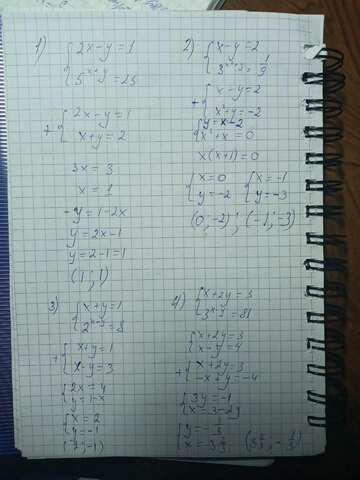 1) { 2x-y=1
5^{x+y}=25
+{ 2x-y=1
x+y=2
3x=3
x=1
-y=1-2x
y=2x-1
y=2-1=1
(1;1)
2) { x-y=2
3^{x²+y}=1/9
+{ x-y=2
x²+y=-2
{ y=x-2
x²+x=0
x(x+1)=0
{ x=0 { x=-1
y=-2 y=-3
(0;-2); (-1;-3)
3) { x+y=1
2^{x-y}=8
+{ x+y=1
x-y=3
{ 2x=4
y=1-x
{ x=2
y=-1
(2;-1)
4) { x+2y=3
3^{x-y}=81
{ x+2y=3
x-y=4
+{ x+2y=3
-x+y=-4
{ 3y=-1
x=3-2y
{ y=-1/3
x=3 2/3 (3 2/3; -1/3)